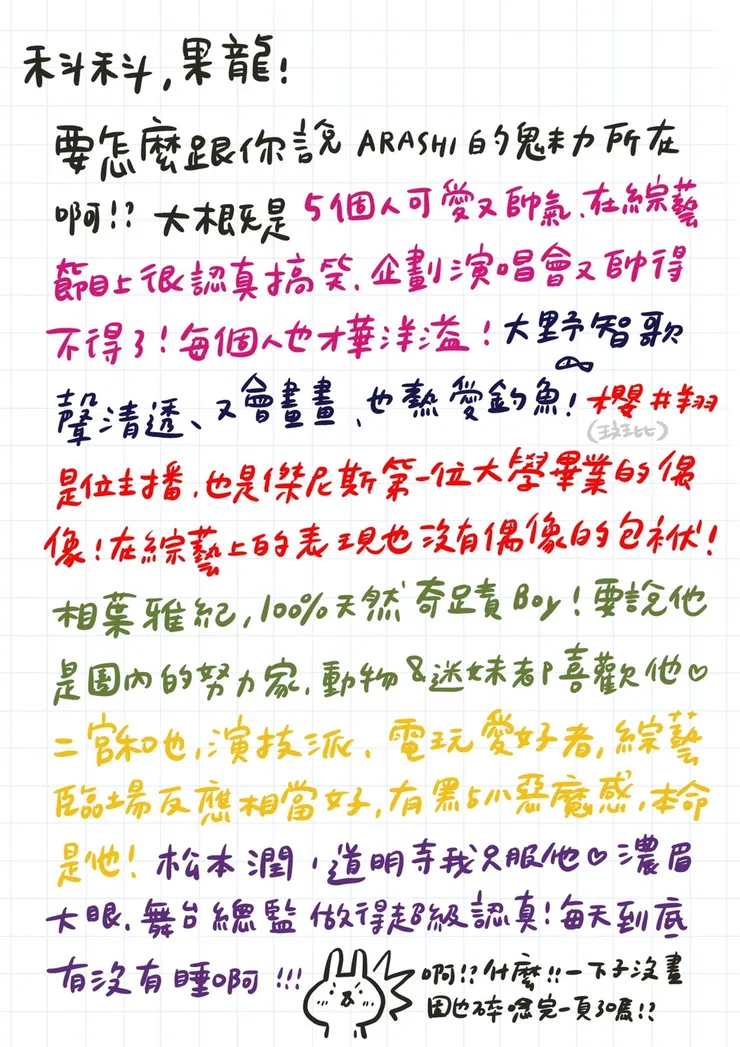 科科,果龍!
要怎麼跟你說 ARASHI的魅力所在
啊!? 大概是 5個人可愛又帥氣、在綜藝
節目上很認真搞笑、企劃演唱會又帥得
不得了!每個人也才華洋溢!大野智歌
聲清透、又會畫畫、也熱愛釣魚!櫻井翔
是位主播,也是傑尼斯第一位大學畢業的偶
像!在綜藝上的表現也沒有偶像的包袱!
相葉雅紀,100%天然奇蹟Boy!要說他
是團內的努力家、動物&迷妹都喜歡他♡
二宮和也,演技派、電玩愛好者,綜藝
臨場反應相當好,有黑小惡魔感,本命
是他!松本潤,道明寺我只服他♡濃眉
大眼、舞台總監做得超級認真!每天到底
有沒有睡啊!!!
啊!?什麼!!一下子沒畫
圖也碎唸完一頁了嗎!?